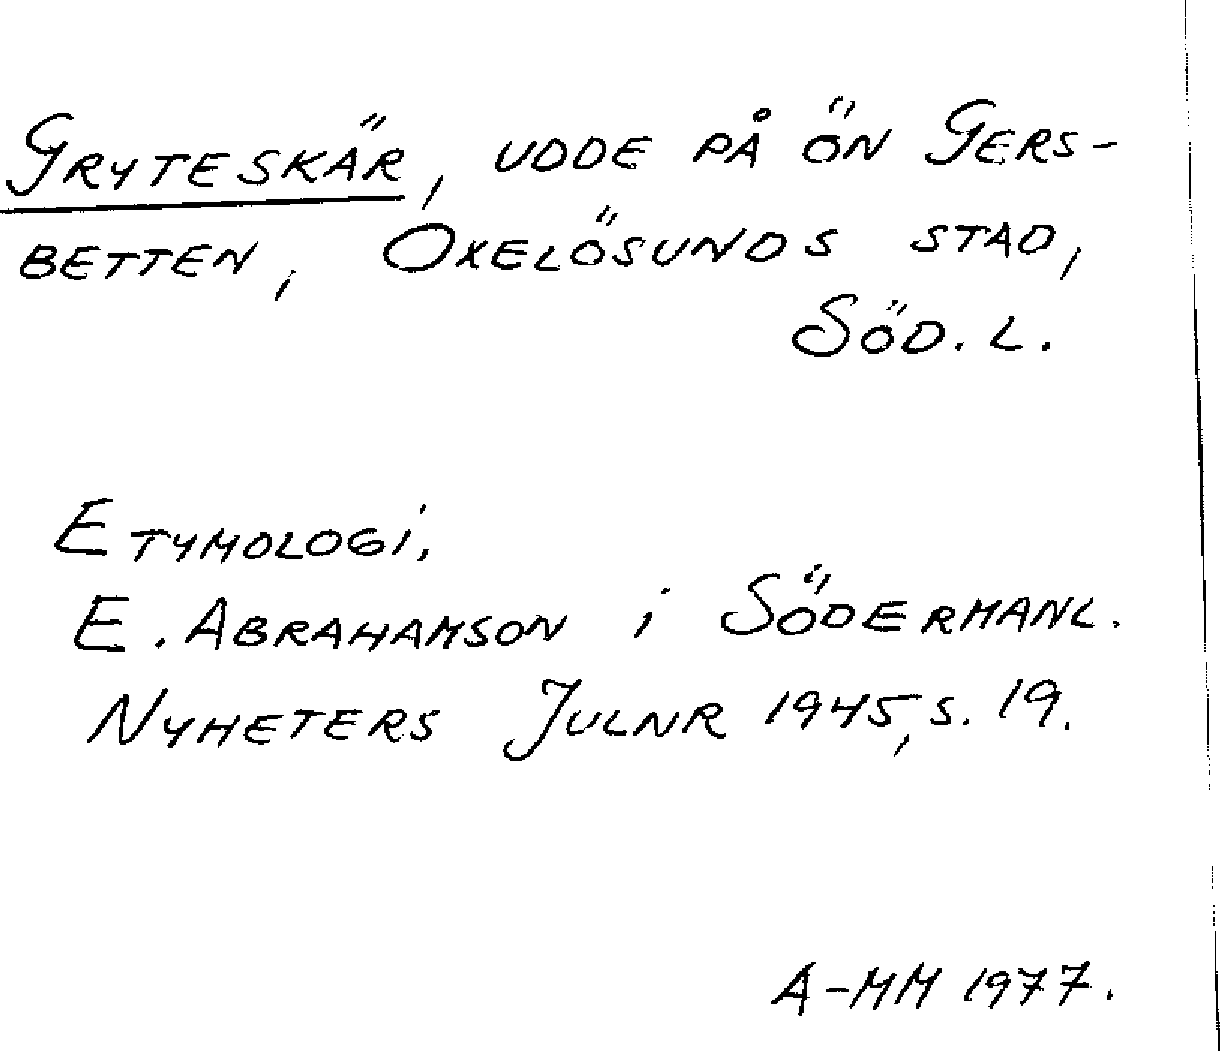 GRYTESKÄR, UDDE PÅ ÖN GERS-
BETTEN, OXELÖSUNDS STAD,
SÖD. L.
ETYMOLOGI.
E. ABRAHAMSON i SÖDERMANL.
NYHETERS JULNR 1945, S. 19.
A-MM 1977.